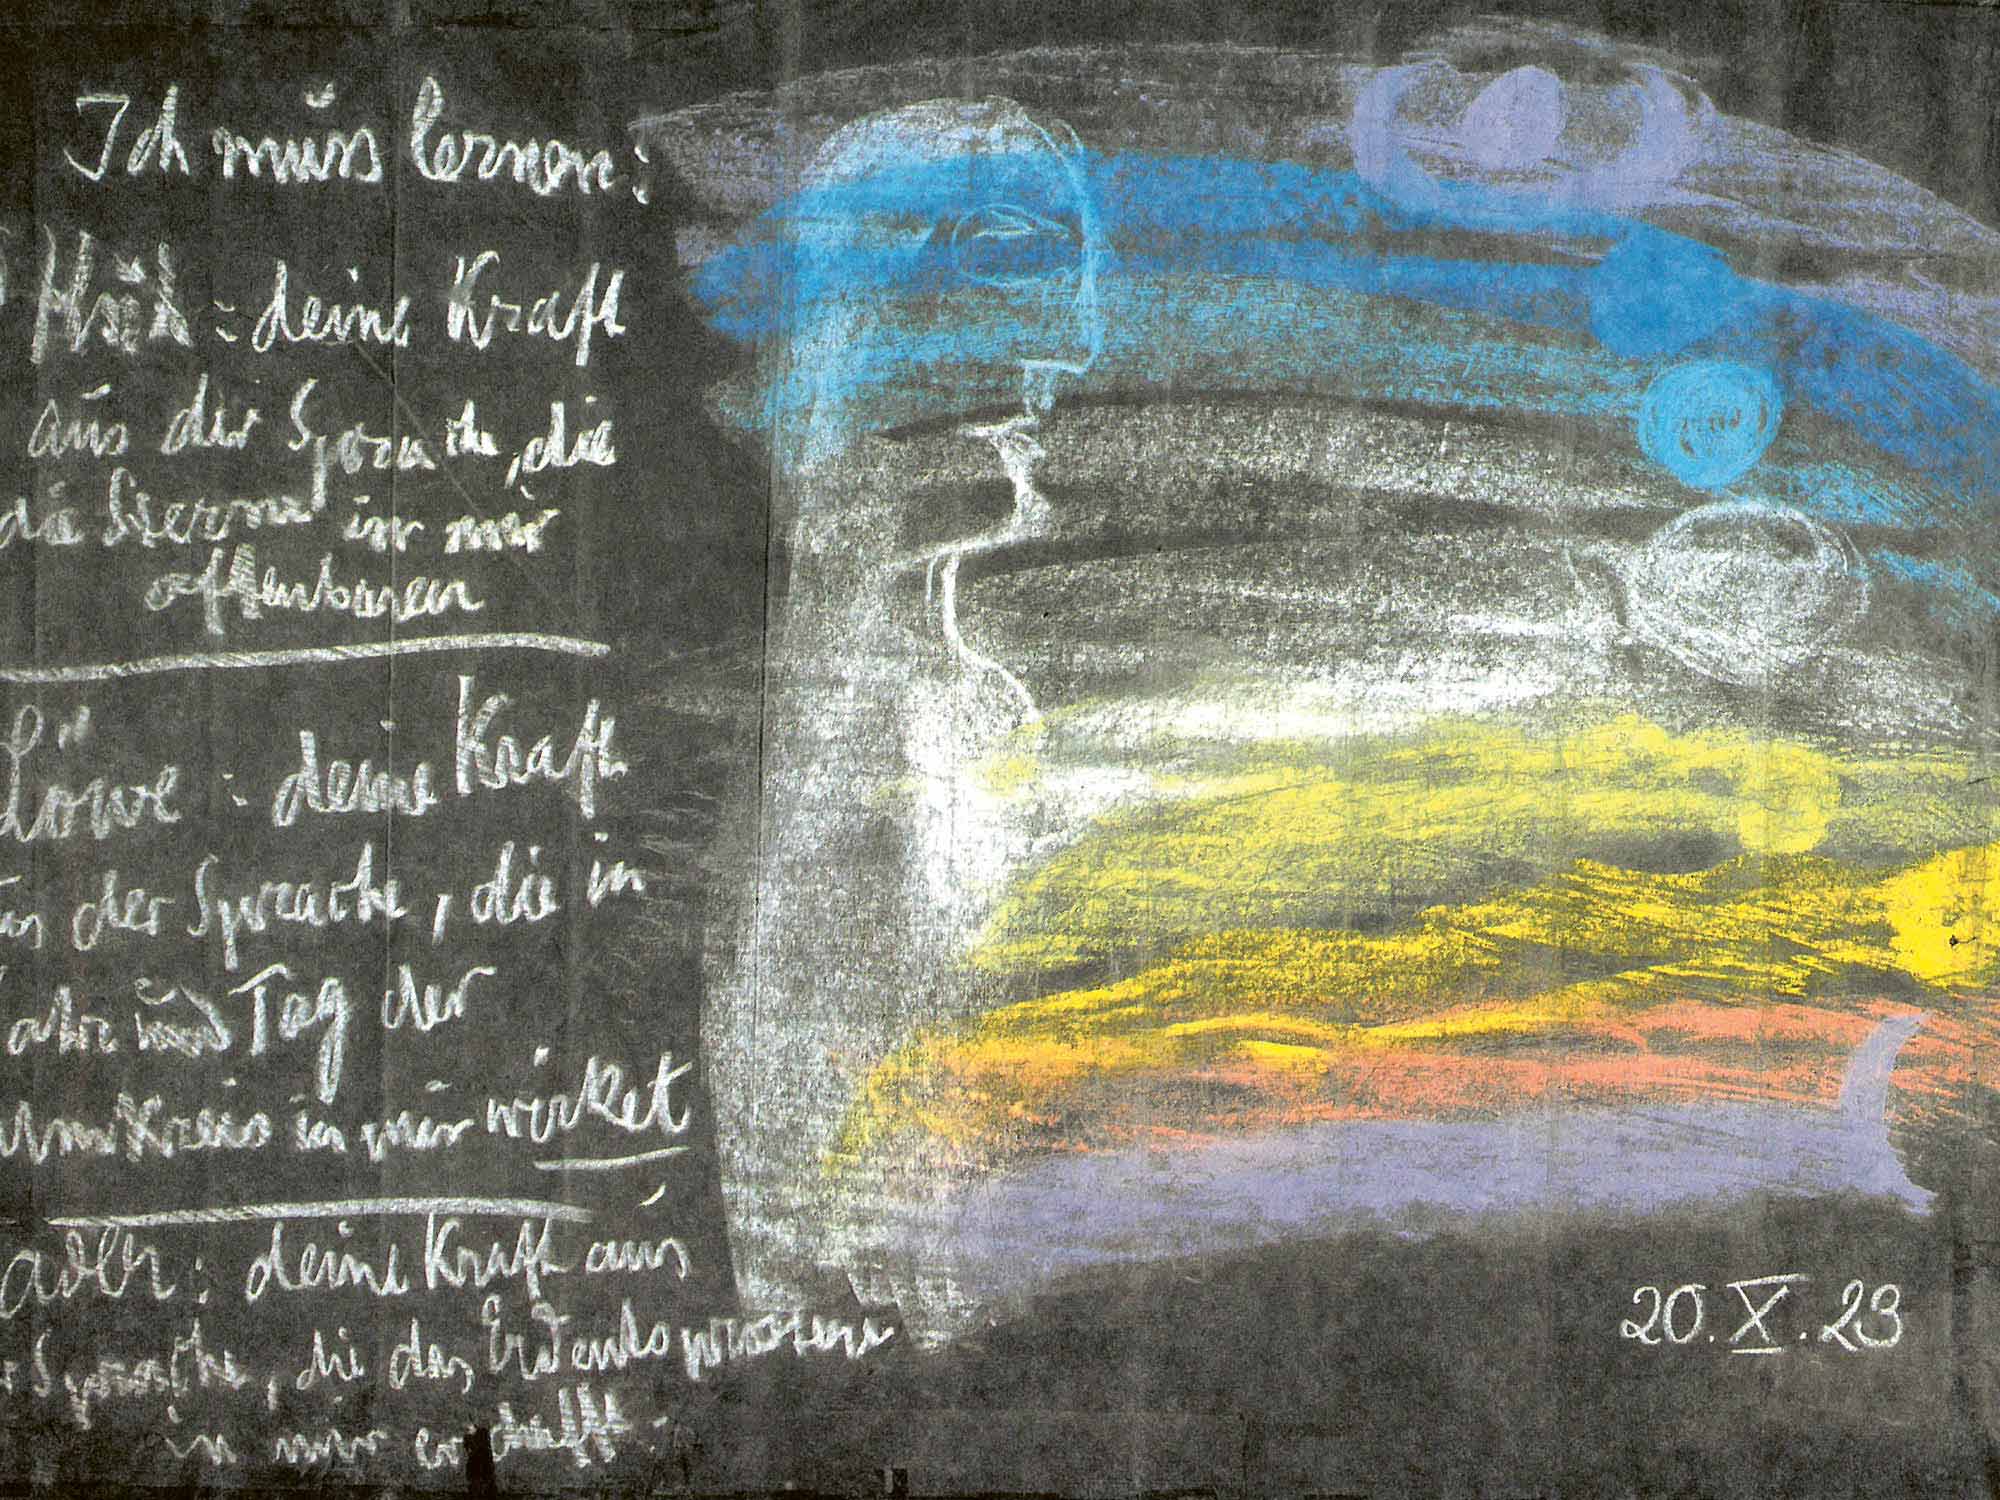 Ich muss lernen:
Kuh: deine Kraft
aus der Sprache, die
die Sterne in mir
offenbaren
Löwe: deine Kraft
aus der Sprache, die in
Jahr und Tag der
Umkreis in mir wirket
adler: deine Kraft aus
der Sprache, die das Erdentsprossene
in mir erschafft.
20.X.23